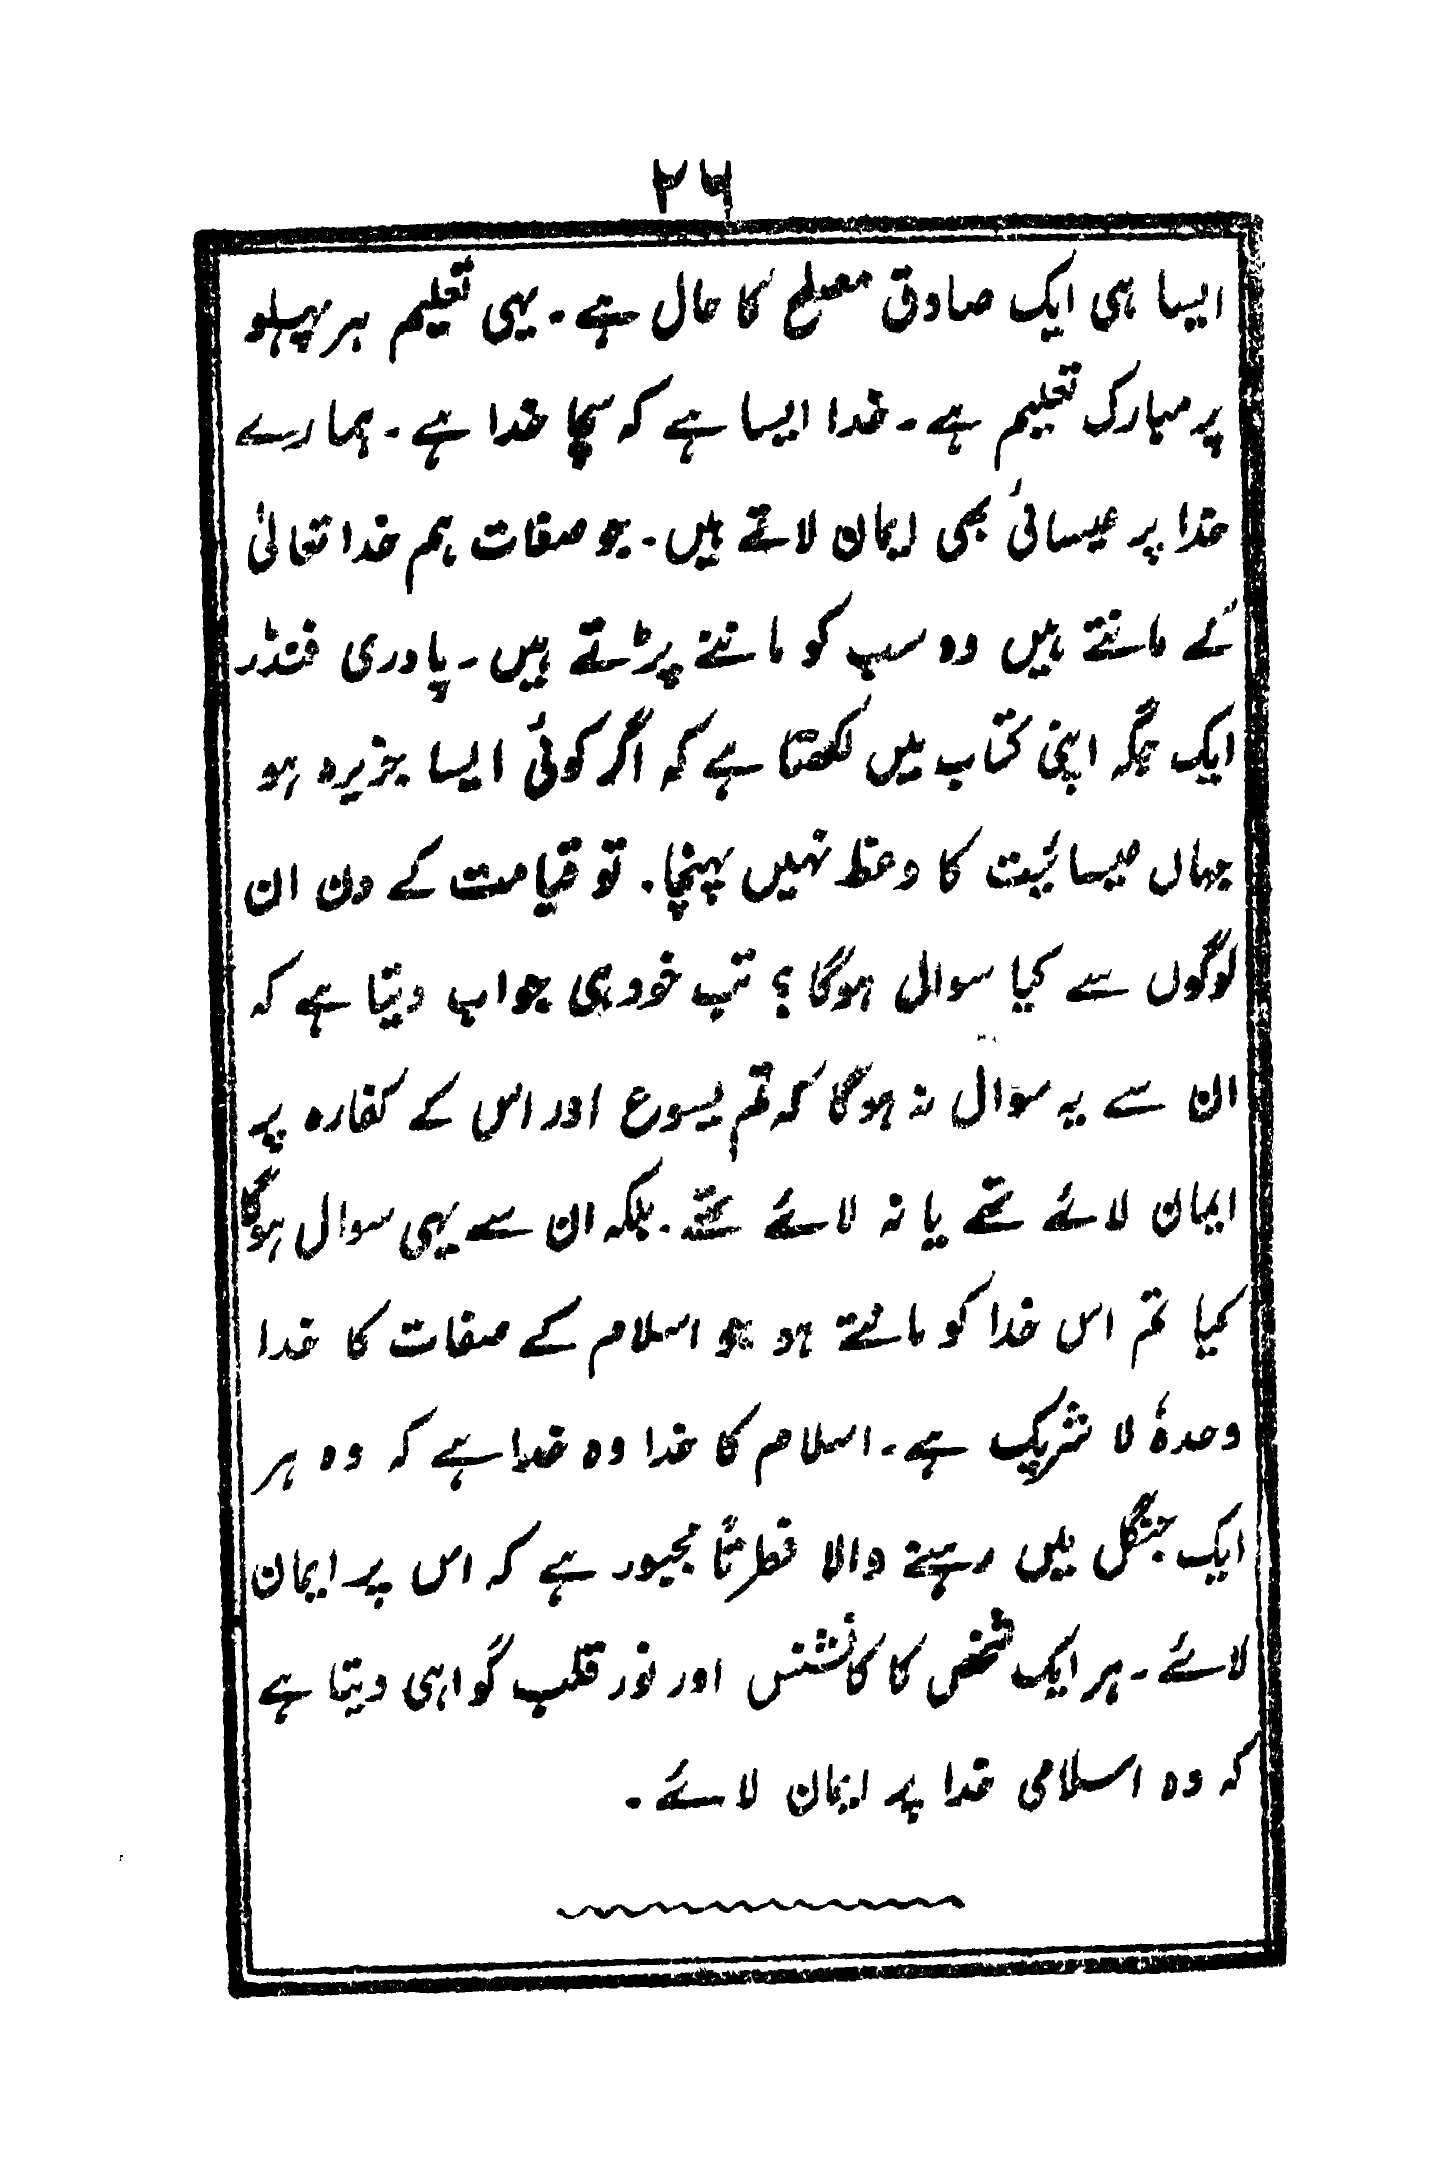 ۲۶
ایسا ہی ایک صادق مصلح کا حال ہے۔ یہی تعلیم ہر پہلو
پر مبارک تعلیم ہے۔ خدا ایسا ہے کہ سچا خدا ہے۔ ہمارے
خدا پر عیسائی بھی ایمان لاتے ہیں۔ جو صفات ہم خدا تعالیٰ
کے مانتے ہیں وہ سب کو ماننے پڑتے ہیں۔ پادری فنڈر
ایک جگہ اپنی کتاب میں لکھتا ہے کہ اگر کوئی ایسا جزیرہ ہو
جہاں عیسائیت کا وعظ نہیں پہنچا۔ تو قیامت کے دن ان
لوگوں سے کیا سوال ہوگا؟ تب خود ہی جواب دیتا ہے کہ
ان سے یہ سوال نہ ہوگا کہ تم یسوع اور اس کے کفارہ پر
ایمان لائے تھے یا نہ لائے تھے۔ بلکہ ان سے یہی سوال ہوگا
کیا تم اس خدا کو مانتے ہو جو اسلام کے صفات کا خدا
وحدہٗ لا شریک ہے۔ اسلام کا خدا وہ خدا ہے کہ وہ ہر
ایک جنگل میں رہنے والا فطرتاً مجبور ہے کہ اس پر ایمان
لائے۔ ہر ایک شخص کا کانشنس اور نور قلب گواہی دیتا ہے
کہ وہ اسلامی خدا پر ایمان لائے۔